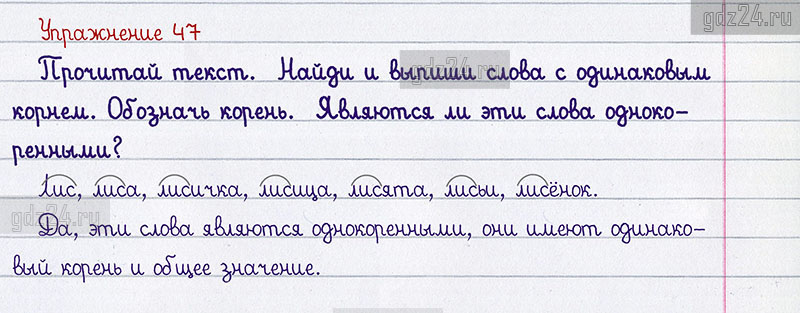 gdz24.ru
Упражнение 47
gdz24.ru
Прочитай текст. Найди и выпиши слова с одинаковым
корнем. Обозначь корень. Являются ли эти слова одноко-
ренными?
Лис, лиса, лисичка, лисица, лисята, лисы, лисёнок.
gdz24.ru
Да, эти слова являются однокоренными, они имеют одинако-
вый корень и общее значение.